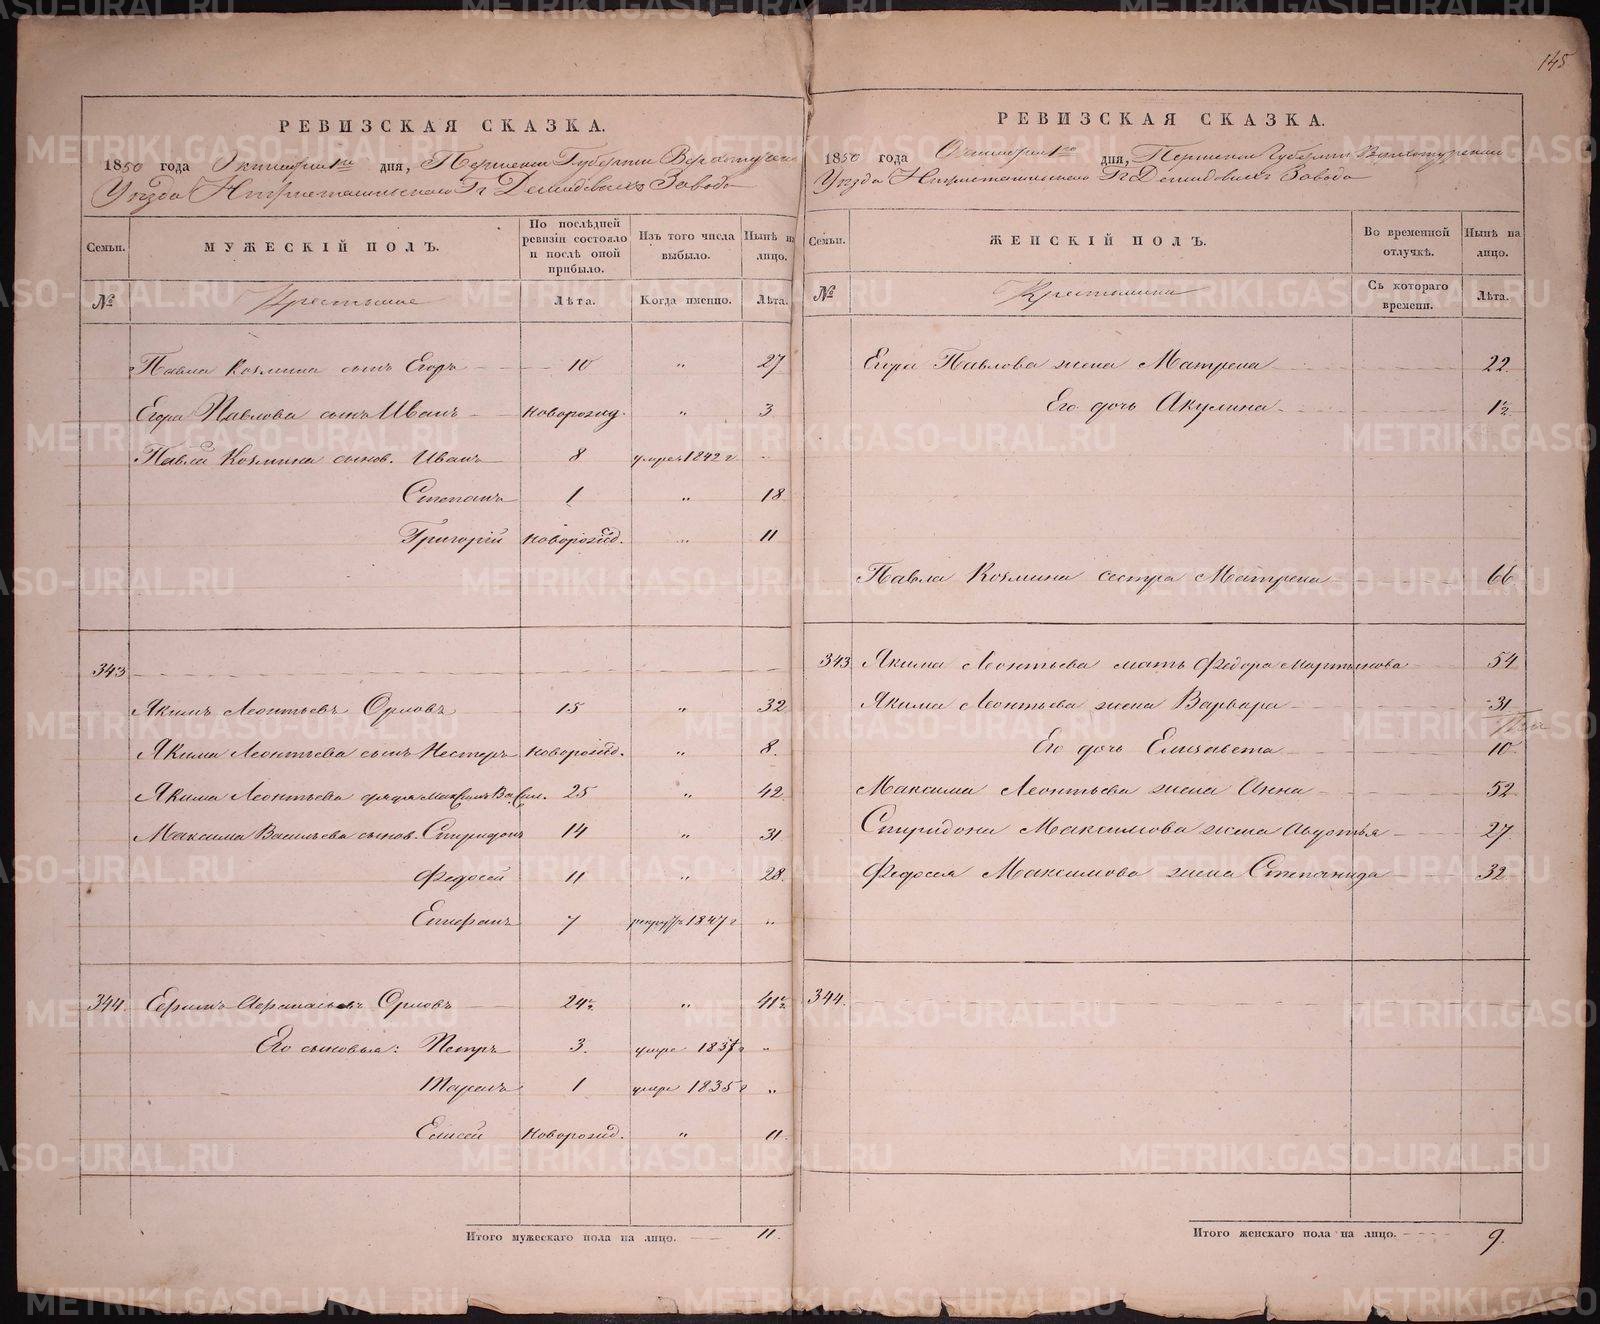 145
РЕВИЗСКАЯ СКАЗКА.
1850 года Октября 1го дня, Пермской Губернiи Верхотурскаго
Уѣзда Нижнетагильскаго Гг. Демидовыхъ Завода
Семьи. МУЖЕСКІЙ ПОЛЪ. По послѣдней ревизіи состояло и послѣ оной прибыло. Изъ того числа выбыло. Нынѣ на лицо.
№ Крестьяне Лѣта. Когда именно. Лѣта.
Павла Козмина сынъ Егоръ 10 „ 27
Егора Павлова сынъ Иванъ новорожд. „ 3
Павла Козмина сынов. Иванъ 8 умре 1842 г
Степанъ 1 „ 18
Григорій новорожд. „ 11
343
Якимъ Леонтьевъ Орловъ 15 „ 32
Якима Леонтьева сынъ Нестеръ новорожд. „ 8
Якима Леонтьева дядя Максимъ Васил. 25 „ 42
Максима Васильева сынов. Спиридонъ 14 „ 31
Федосей 11 „ 28
Епифанъ 7 рекрут. 1847 г „
344. Ефимъ Афанасьевъ Орловъ 24½ „ 41½
Его сыновья: Петръ 3. умре 1837 г „
Тарасъ 1 умре 1835 г „
Елисей новорожд. „ 11.
Итого мужескаго пола на лицо. 11.
РЕВИЗСКАЯ СКАЗКА.
1850 года Октября 1го дня, Пермской Губерніи Верхотурскаго
Уѣзда Нижнетагильскаго Гг. Демидовыхъ Завода
Семьи. ЖЕНСКІЙ ПОЛЪ. Во временной отлучкѣ. Нынѣ на лицо.
№ Крестьянки Съ котораго времени. Лѣта.
Егора Павлова жена Матрена 22
Его дочь Акулина ½
Павла Козмина сестра Матрена 66
343 Якима Леонтьева мать Федора Мартынова 54
Якима Леонтьева жена Варвара 31
Его дочь Елизавета 10
Максима Леонтьева жена Анна 52
Спиридона Максимова жена Авдотья 27
Федосея Максимова жена Степанида 32
344.
Итого женскаго пола на лицо. 9.
METRIKI.GASO-URAL.RU